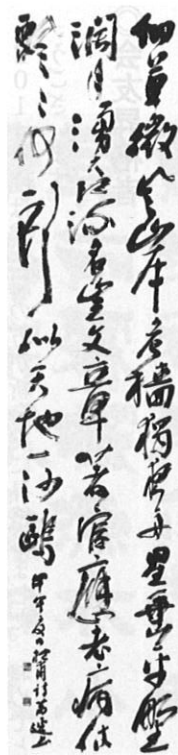 細草微風岸危檣獨夜舟星垂平野
濶月湧大江流名豈文章著官應老病休
飄々何所似天地一沙鷗 甲午